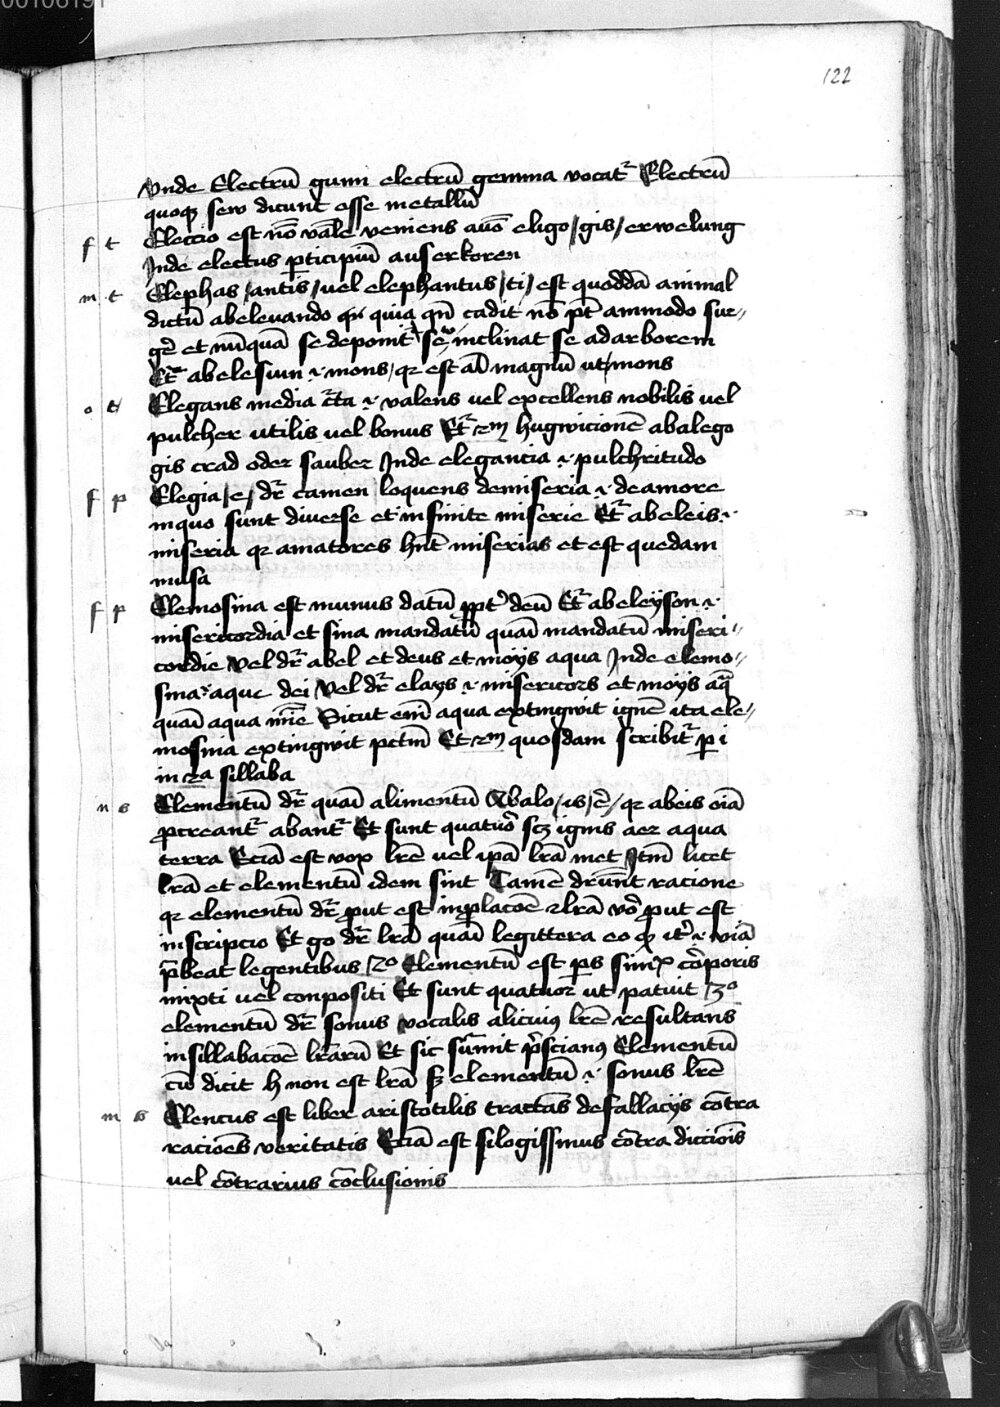 122
Vnde Electrū gumi electrū gemma vocat᷑ Electrū
quoqꝫ sew dicunt esse metallū
f t Eleccio est nō vale veniens a uō eligo / gis / erwelung
Inde electus pticipiū auserkoren
m t Elephas / antis / vel elephantus / ti / est quoddā animal
dictū abelevando quia qn̄ cadit nō pt̄ ammodo sur〃
ge᷑ et nūquā se deponit sed inclinat se adarborem
Et᷑ abelesium ·i· mons / qꝛ est aīl magnū ut mons
o t Elegans media cc̄ta ·i· valens vel excellens nobilis vel
pulcher utilis vel bonus Et᷑ ꝛm hugwicionē abalego
gis crad oder sauber Inde elegancia ·i· pulchritudo
f p Elegia / e / dr̄ camen loquens demiseria ·i· deamore
inquo sunt diverse et infinite miserie Et᷑ abeleis ·i·
miseria qꝛ amatores hn̄t miserias et est quedam
musa
f p Elemosina est munus datū ꝓpt᷑ deū Et᷑ abeleyson ·i·
misericordia et sina mandatū quāi mandatū miseri〃
cordie Vel dr̄ abel et deus et moys aqua Inde elemo〃
sina ·i· aque dei Vel dr̄ elays ·i· misericors et moys aq̄
quāi aqua mīe Sicut em̄ aqua extingwit ignē ita ele〃
mosina extingwit pctm̄ Et ꝛm quosdam scribit᷑ ꝑ i
in 2a sillaba
n s Elementū dr̄ quāi alimentū Abalo / is / e᷑ / qꝛ abeis oīa
ꝓcreant᷑ abant᷑ Et sunt quatuōr scꝫ ignis aer aqua
terra Eciā est vox lr̄e vel ipā lr̄a met Itm̄ licet
lr̄a et elementū idem sint Tamē dr̄unt racione
qꝛ elementū dr̄ ꝓut est inꝓlacōe lr̄a vō ꝓut est
inscripcio Et go dr̄ lr̄a quāi legittera eo qꝫ it᷑ ·i· viā
p̄beat legentibus / 2o Elementū est ps simꝑ corporis
mixti vel conpositi Et sunt quatuor ut patuit / 3o
elementū dr̄ sonus vocalis alicuiꝯ lr̄e resultans
insillabacōe lr̄arū Et sic sumit p̄scianꝯ Elementū
cū dicit h non est lr̄a sꝫ elementū ·i· sonus lr̄e
m s Elencus est liber aristotilis tractās defallacijs cōtra
racioēs veritatis Eciā est silogissmus cōtra diccioīs
vel cōtrarius cōclusionis